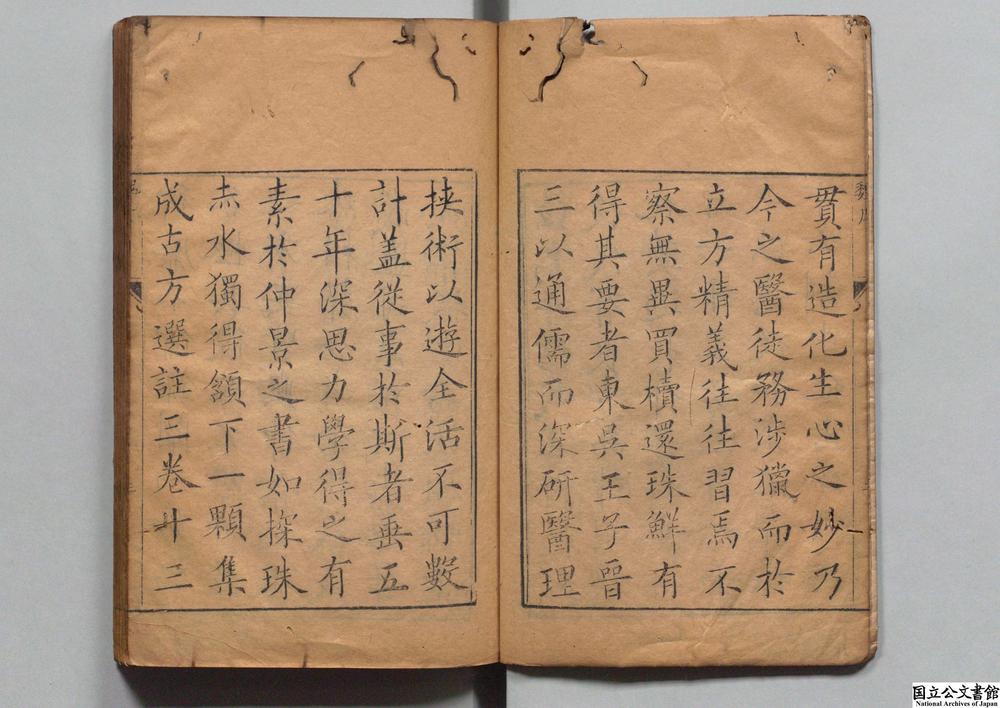 貫有造化生心之妙乃
今之醫徒務涉獵而於
立方精義往往習焉不
察無異買櫝還珠鮮有
得其要者東吳王子晉
三以通儒而深研醫理
挟術以遊全活不可數
計盖從事於斯者垂五
十年深思力學得之有
素於仲景之書如探珠
赤水獨得頷下一顆集
成古方選註三卷廾三
国立公文書館
National Archives of Japan